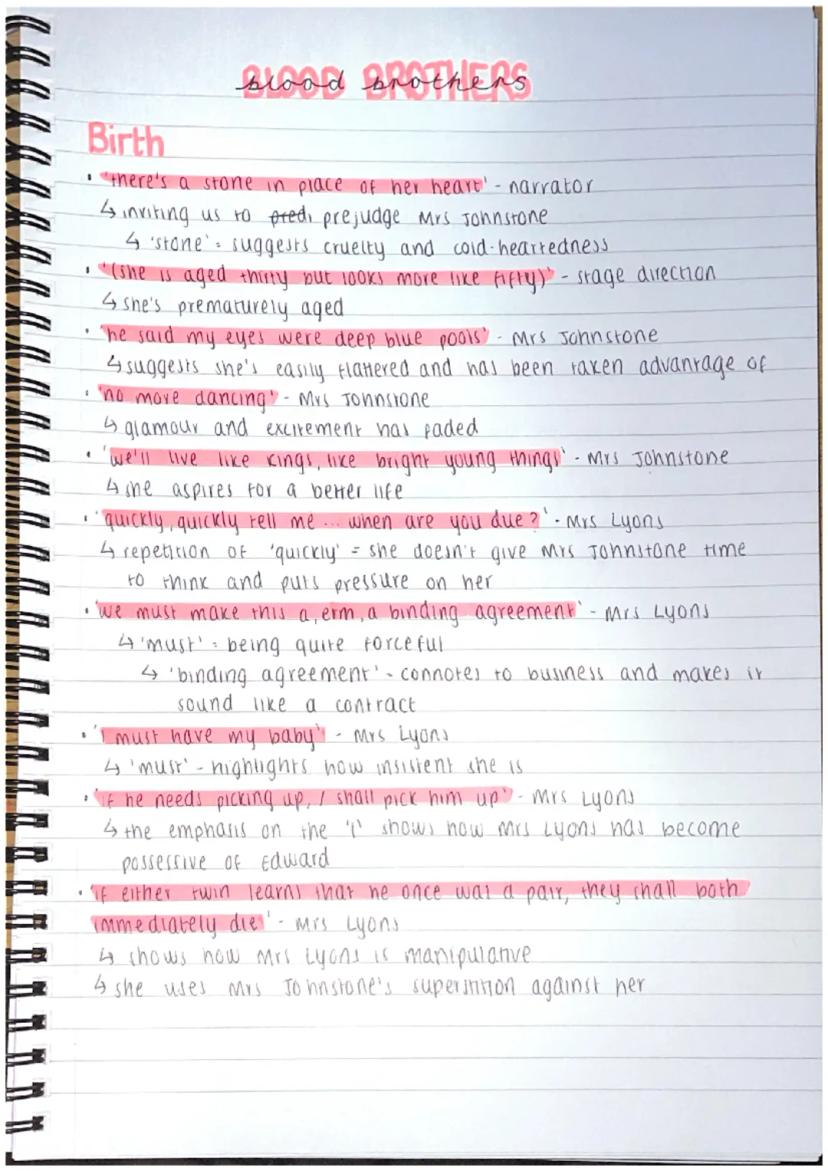 BLOOD BROTHERS
blood brothers
Birth
• 'there's a stone in place of her heart' - narrator
↳ inviting us to predi prejudge Mrs Johnstone
↳ 'stone' = suggests cruelty and cold-heartedness
• '(she is aged thirty but looks more like fifty)' - stage direction
↳ she's prematurely aged
• 'he said my eyes were deep blue pools' - Mrs Johnstone
↳ suggests she's easily flattered and has been taken advantage of
• 'no more dancing' - Mrs Johnstone
↳ glamour and excitement has faded
• 'we'll live like kings, like bright young things' - Mrs Johnstone
↳ she aspires for a better life
• 'quickly, quickly tell me ... when are you due?' - Mrs Lyons
↳ repetition of 'quickly' = she doesn't give Mrs Johnstone time
to think and puts pressure on her
• 'we must make this a, erm, a binding agreement' - Mrs Lyons
↳ 'must' = being quite forceful
↳ 'binding agreement' - connotes to business and makes it
sound like a contract
• 'I must have my baby' - Mrs Lyons
↳ 'must' - highlights how insistent she is
• 'if he needs picking up, I shall pick him up' - Mrs Lyons
↳ the emphasis on the 'I' shows how Mrs Lyons has become
possessive of Edward
• 'if either twin learns that he once was a pair, they shall both
immediately die' - Mrs Lyons
↳ shows how Mrs Lyons is manipulative
↳ she uses Mrs Johnstone's superstition against her